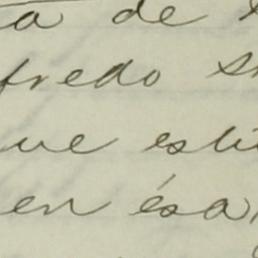 a de
fredo
ue esti
en ésa,